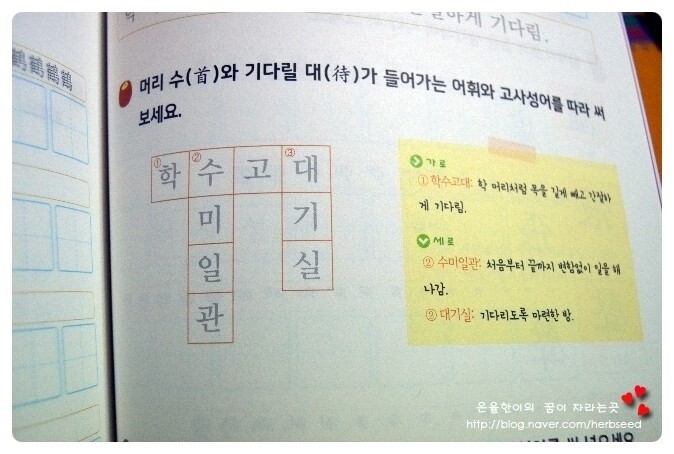 게 기다림.
鶴鶴鶴鶴
머리 수(首)와 기다릴 대(待)가 들어가는 어휘와 고사성어를 따라 써
보세요.
①학 ②수 고 ③대
미 기
일 실
관
가로
① 학수고대: 학 머리처럼 목을 길게 빼고 간절하
게 기다림.
세로
② 수미일관: 처음부터 끝까지 변함없이 일을 해
나감.
③ 대기실: 기다리도록 마련한 방.
은율한이의 꿈이 자라는곳
http://blog.naver.com/herbseed